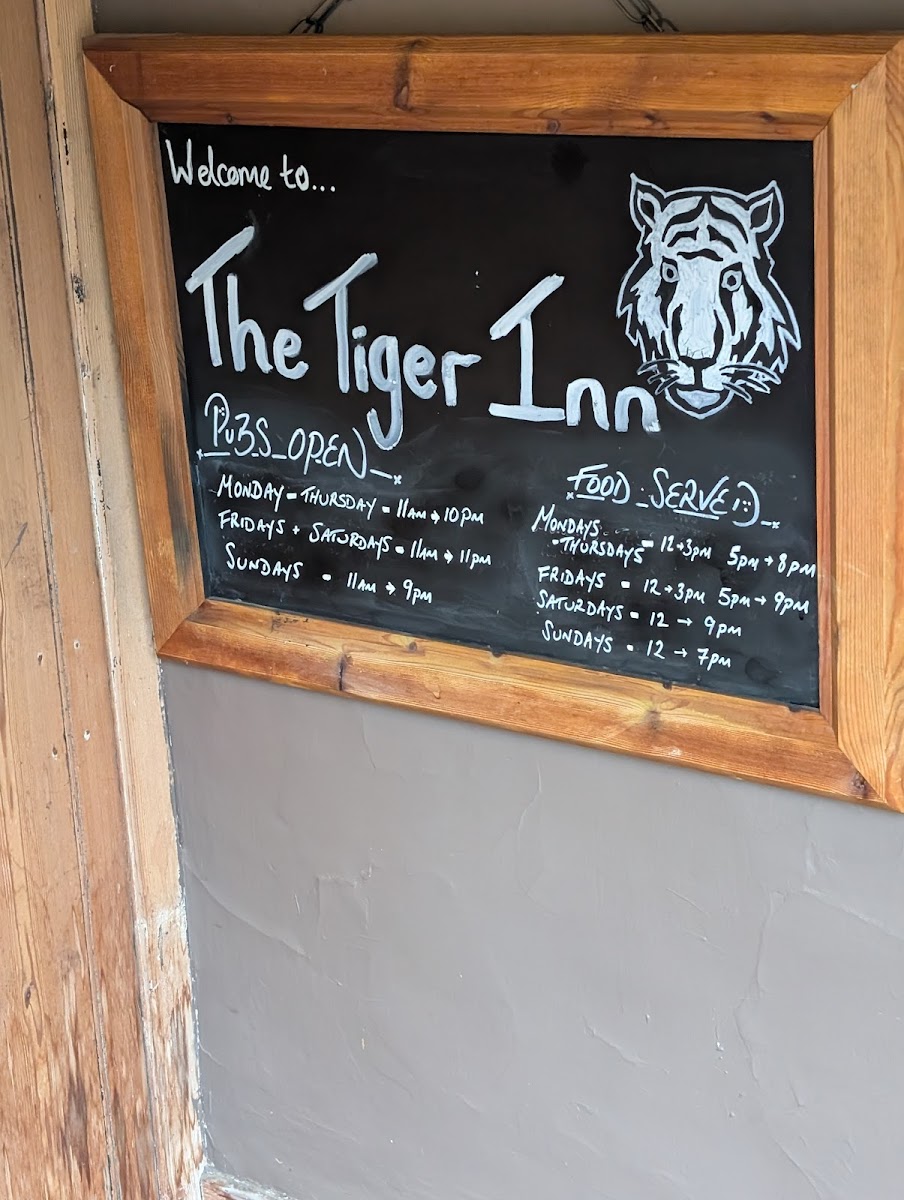 Welcome to...
The Tiger Inn
PUBS OPEN
MONDAY - THURSDAY = 11AM → 10PM
FRIDAYS + SATURDAYS = 11AM → 11PM
SUNDAYS = 11AM → 9PM
FOOD SERVED
MONDAYS
- THURSDAYS = 12→3PM 5PM → 8PM
FRIDAYS = 12→3PM 5PM → 9PM
SATURDAYS = 12 → 9PM
SUNDAYS = 12 → 7PM